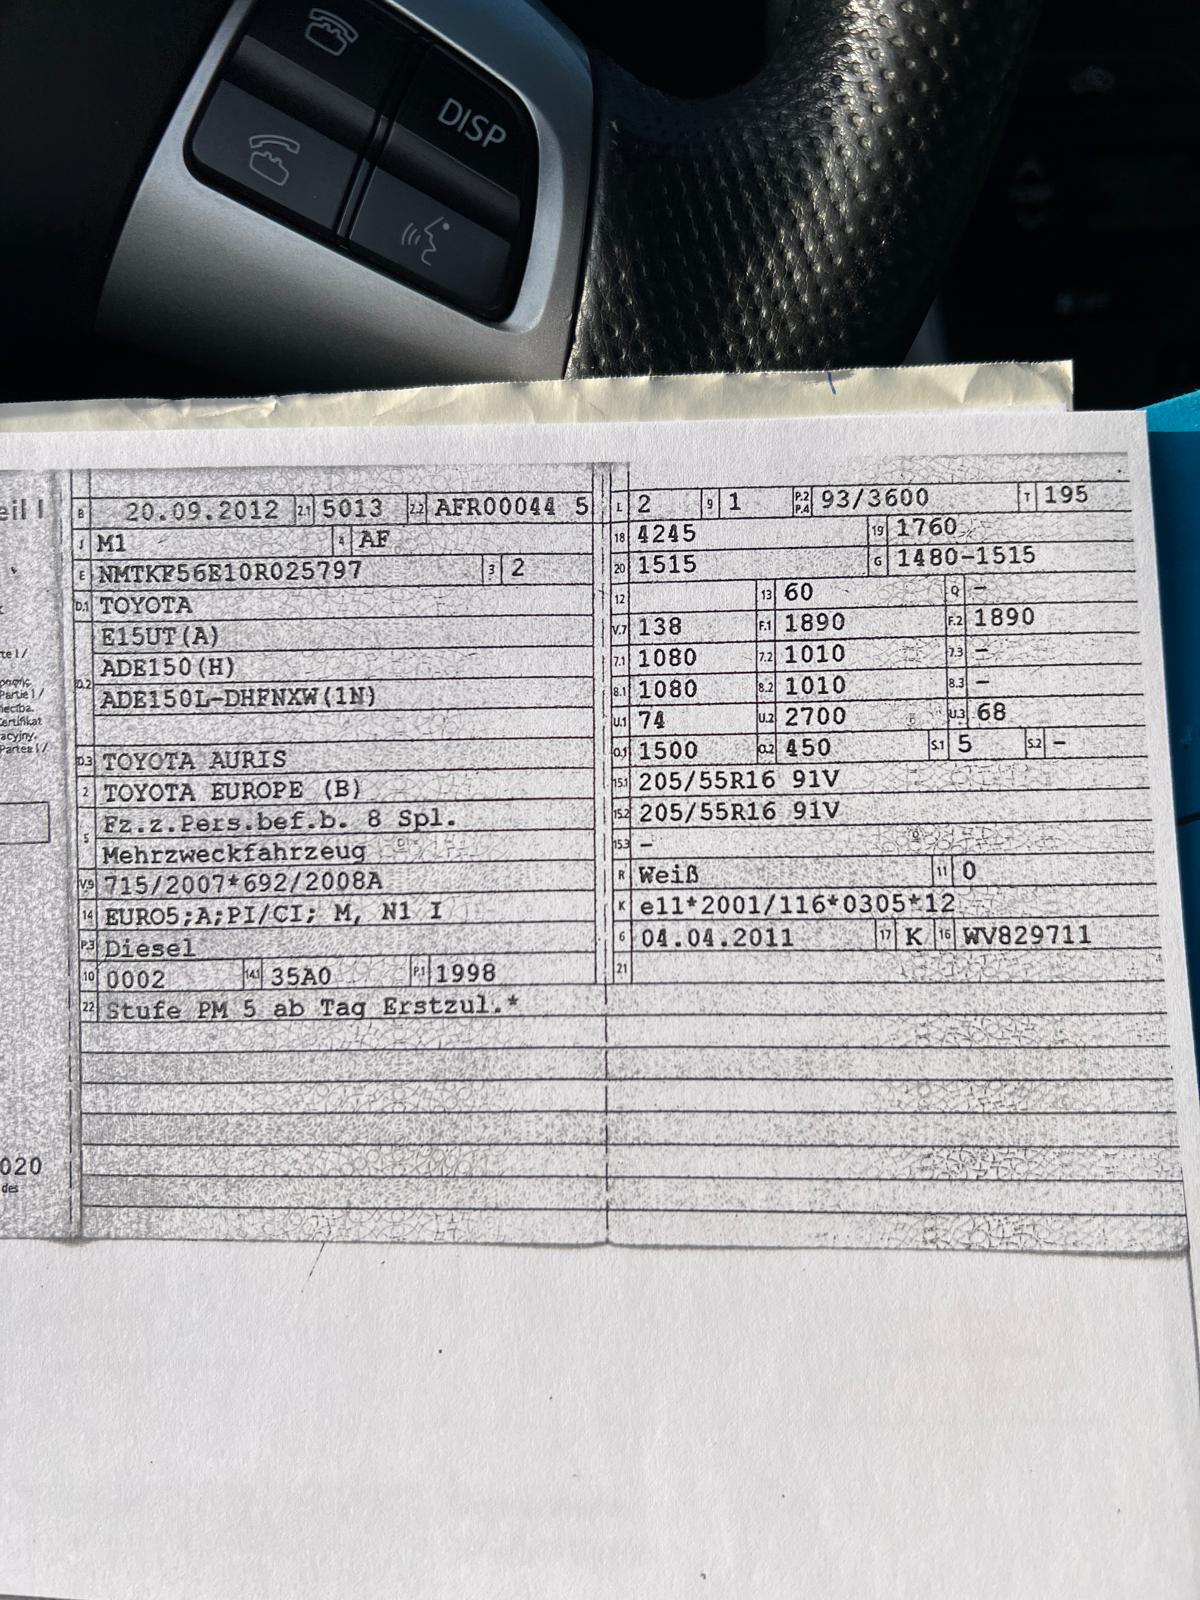 DISP
eil I
B 20.09.2012 2.1 5013 2.2 AFR00044 5
J M1 4 AF
E NMTKF56E10R025797 3 2
D.1 TOYOTA
E15UT(A)
D.2 ADE150(H)
ADE150L-DHFNXW(1N)
D.3 TOYOTA AURIS
2 TOYOTA EUROPE (B)
5 Fz.z.Pers.bef.b. 8 Spl.
Mehrzweckfahrzeug
V.9 715/2007*692/2008A
14 EURO5;A;PI/CI; M, N1 I
P.3 Diesel
10 0002 14.1 35A0 P.1 1998
22 Stufe PM 5 ab Tag Erstzul.*
L 2 9 1 P.2 P.4 93/3600 T 195
18 4245 19 1760
20 1515 G 1480-1515
12 13 60 Q –
V.7 138 F.1 1890 F.2 1890
7.1 1080 7.2 1010 7.3 –
8.1 1080 8.2 1010 8.3 –
U.1 74 U.2 2700 U.3 68
O.1 1500 O.2 450 S.1 5 S.2 –
15.1 205/55R16 91V
15.2 205/55R16 91V
15.3 –
R Weiß 11 0
K e11*2001/116*0305*12
6 04.04.2011 17 K 16 WV829711
21
te I /
Partie I /
iecība.
Certifikat
acyjny.
Partea I /
020
des